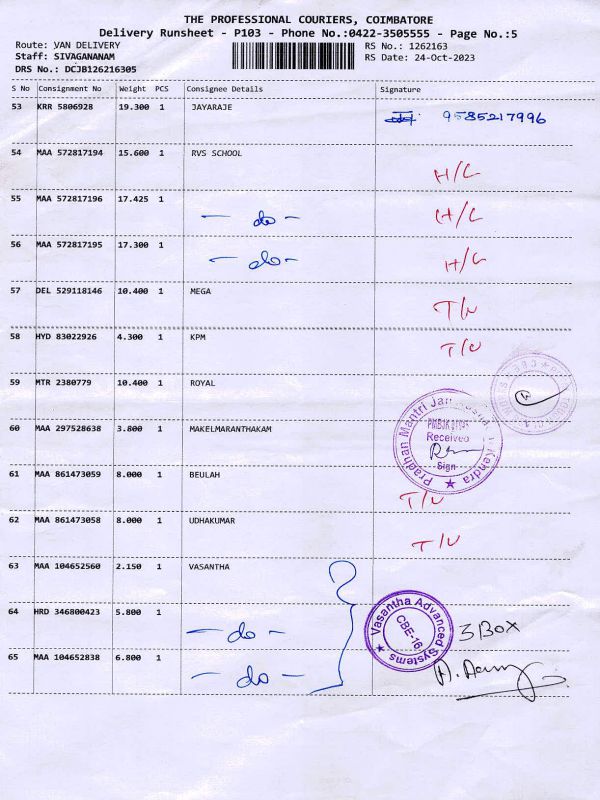 THE PROFESSIONAL COURIERS, COIMBATORE
Delivery Runsheet - P103 - Phone No.:0422-3505555 - Page No.:5
Route: VAN DELIVERY RS No.: 1262163
Staff: SIVAGANANAM RS Date: 24-Oct-2023
DRS No.: DCJB126216305
S No Consignment No Weight PCS Consignee Details Signature
53 KRR 5806928 19.300 1 JAYARAJE 9585217996
54 MAA 572817194 15.600 1 RVS SCHOOL H/C
55 MAA 572817196 17.425 1 - do - H/C
56 MAA 572817195 17.300 1 - do - H/C
57 DEL 529118146 10.400 1 MEGA T/U
58 HYD 83022926 4.300 1 KPM T/U
59 MTR 2380779 10.400 1 ROYAL
60 MAA 297528638 3.800 1 MAKELMARANTHAKAM
Pradhan Mantri Kendra
Received
Sign
61 MAA 861473059 8.000 1 BEULAH T/U
62 MAA 861473058 8.000 1 UDHAKUMAR T/U
63 MAA 104652560 2.150 1 VASANTHA
64 HRD 346800423 5.800 1 - do - 3 BOX
Vasantha Advanced Systems
CBE-16
65 MAA 104652838 6.800 1 - do -